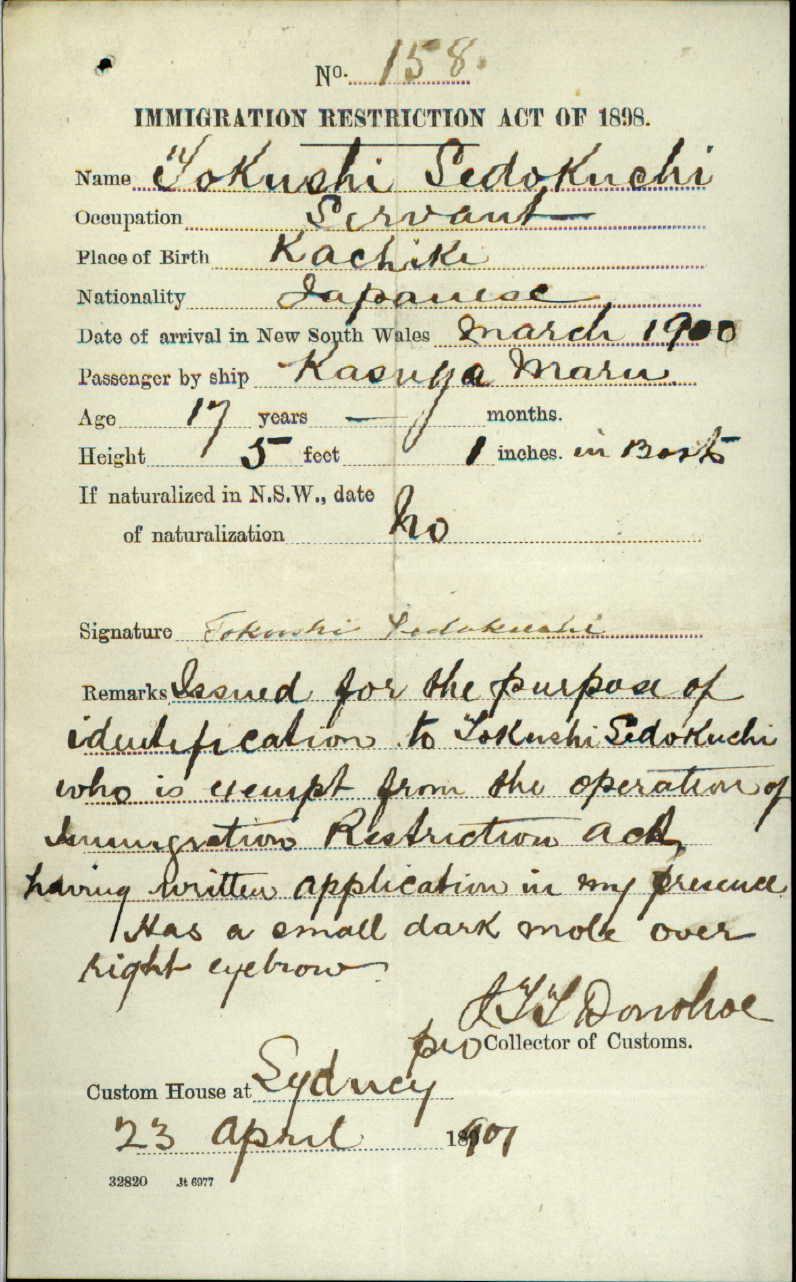 No. 158.
IMMIGRATION RESTRICTION ACT OF 1898.
Name Tokushi Sedokuchi
Occupation Servant
Place of Birth Kachiki
Nationality Japanese
Date of arrival in New South Wales March 1900
Passenger by ship Kasuga Maru.
Age 17 years — months.
Height 5 feet 1 inches. in Boots
If naturalized in N.S.W., date
of naturalization No
Signature Tokushi Sedokushi
Remarks Issued for the purpose of
identification to Tokushi Sedokuchi
who is exempt from the operation of
Immigration Restriction Act,
having written application in my presence.
Has a small dark mole over
right eyebrow.
Donohoe
pro Collector of Customs.
Custom House at Sydney
23 April 1901
32820 Jt 6977